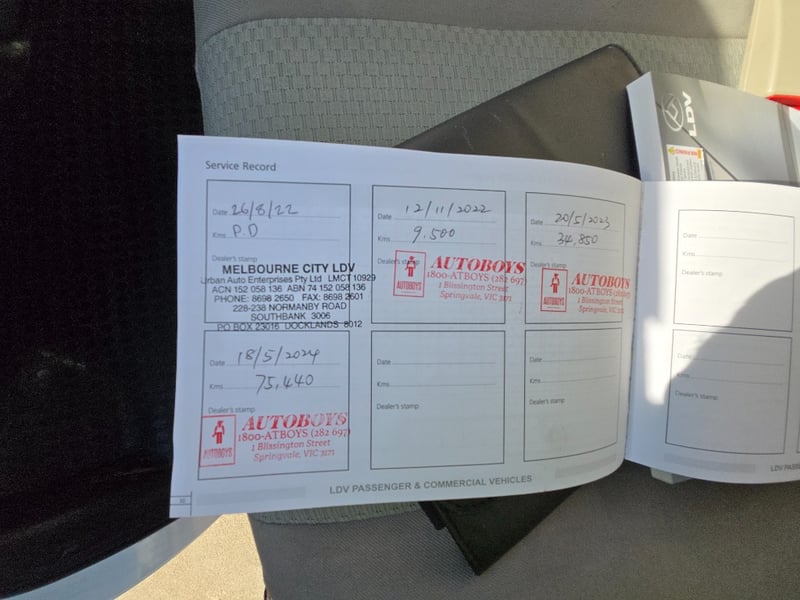 LDV
Service Record
Date 26/8/22
Kms P.D
Dealer's stamp
MELBOURNE CITY LDV
Urban Auto Enterprises Pty Ltd LMCT 10929
ACN 152 058 136 ABN 74 152 058 136
PHONE: 8698 2650 FAX: 8698 2601
228-238 NORMANBY ROAD
SOUTHBANK 3006
PO BOX 23016 DOCKLANDS 8012
Date 12/11/2022
Kms 9.500
Dealer's stamp
AUTOBOYS
AUTOBOYS
1800-ATBOYS (282 697)
1 Blissington Street
Springvale, VIC 3171
Date 20/5/2023
Kms 34,850
Dealer's stamp
AUTOBOYS
AUTOBOYS
1800-ATBOYS
1 Blissington Street
Springvale, VIC 3171
Date
Kms
Dealer's stamp
Date 18/5/2024
Kms 75,440
Dealer's stamp
AUTOBOYS
AUTOBOYS
1800-ATBOYS (282 697)
1 Blissington Street
Springvale, VIC 3171
Date
Kms
Dealer's stamp
Date
Kms
Dealer's stamp
Date
Kms
Dealer's stamp
LDV PASSENGER & COMMERCIAL VEHICLES